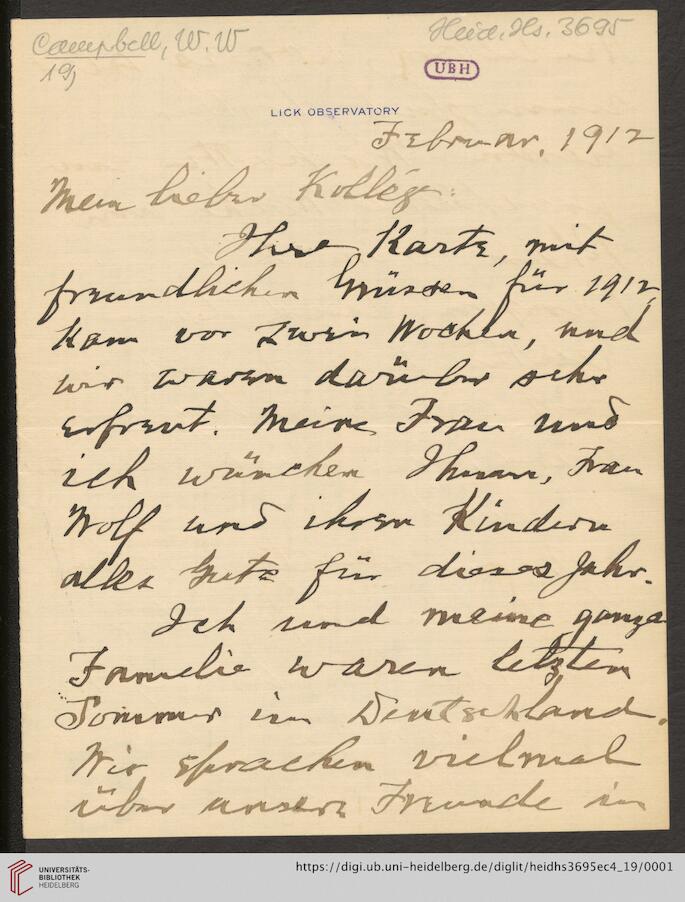 Campbell, W. W
Heid. Hs. 3695
19)
UBH
LICK OBSERVATORY
Februar, 1912
Mein lieber Kollege:
Ihre Karte, mit
freundlichen Grüssen für 1912,
kam vor zwein Wochen, und
wir waren darüber sehr
erfreut. Meine Frau und
ich wünchen Ihnen, Frau
Wolf und ihren Kindern
alles Gute für dieses Jahr.
Ich und meine ganze
Familie waren letzten
Sommer in Deutschland.
Wir sprachen vielmal
über unsere Freunde in
UNIVERSITÄTS-
BIBLIOTHEK
HEIDELBERG
https://digi.ub.uni-heidelberg.de/diglit/heidhs3695ec4_19/0001